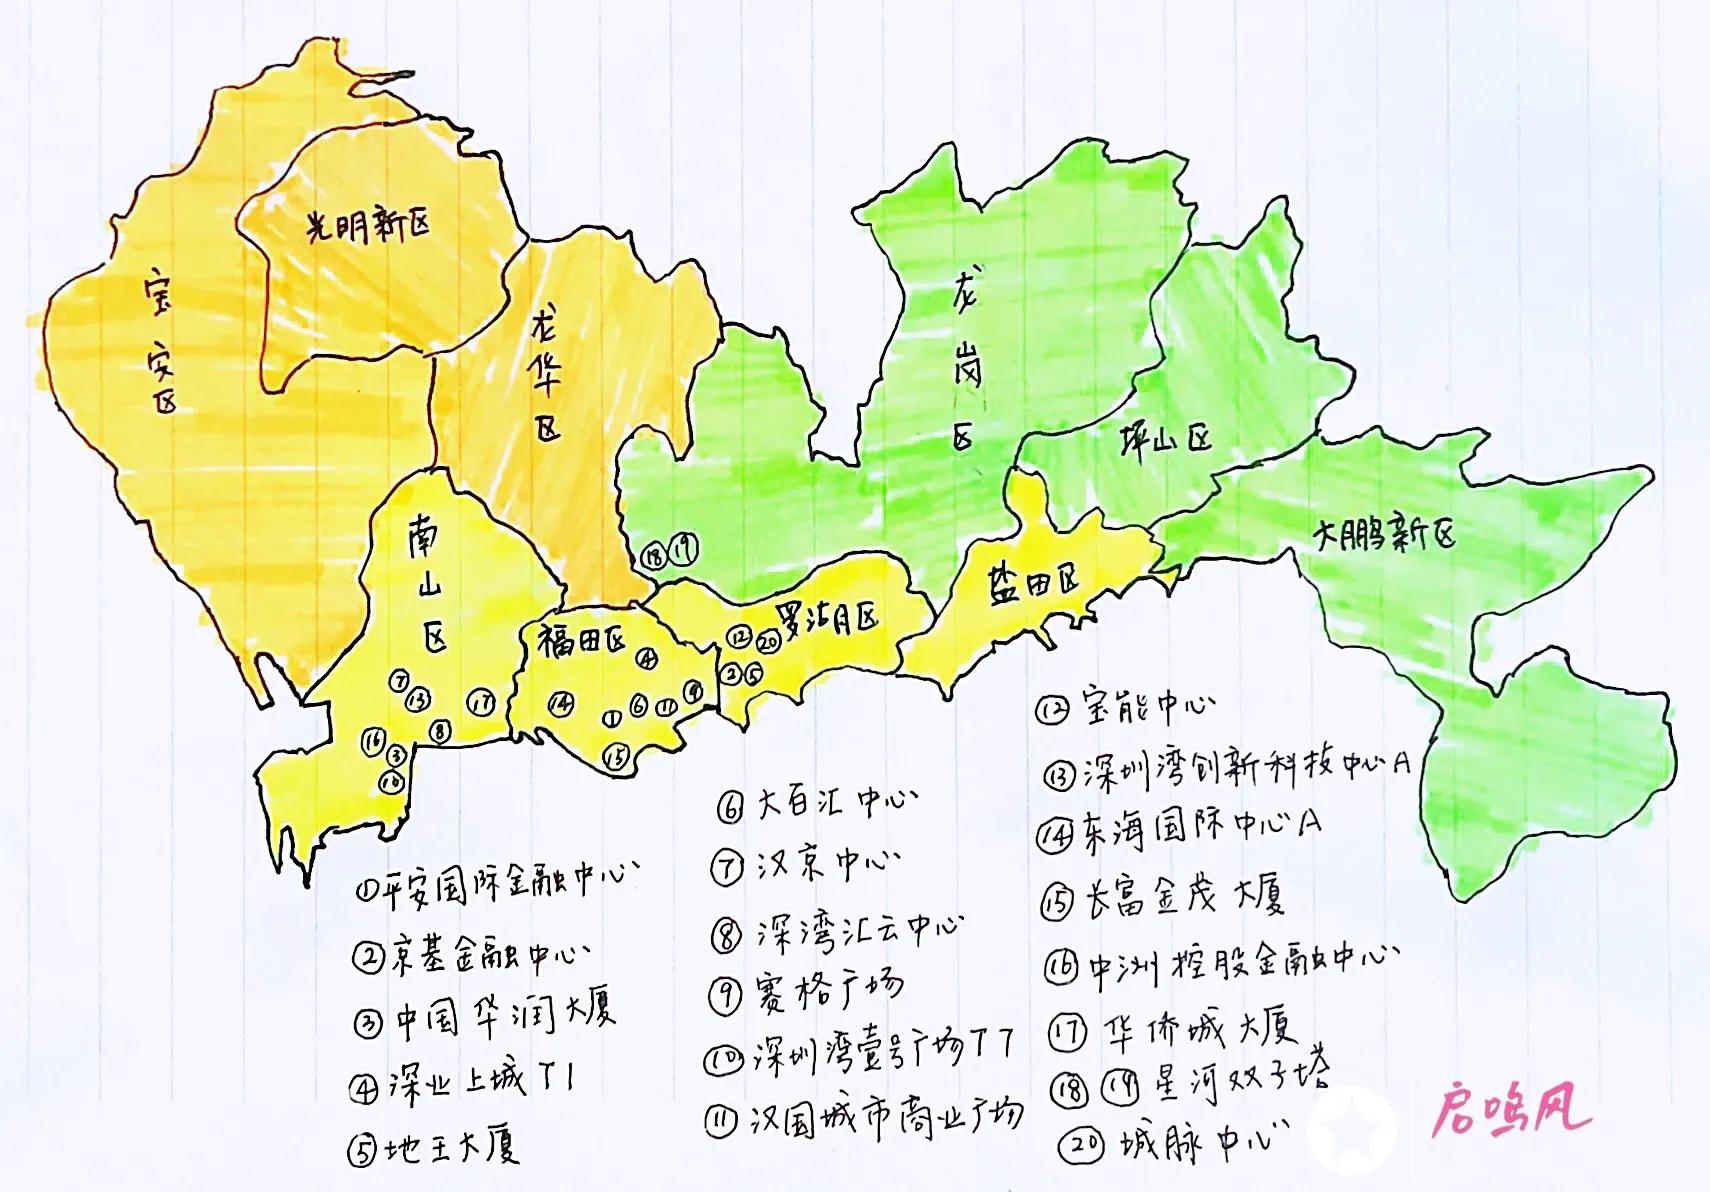 光明新区
宝安区
龙华区
龙岗区
坪山区
大鹏新区
南山区
福田区
罗湖区
盐田区
⑱ ⑲
⑫ ⑳
② ⑤
④
⑭ ① ⑥ ⑪ ⑨
⑮
⑦
⑬ ⑰
⑧
⑯
③
⑩
①平安国际金融中心
②京基金融中心
③中国华润大厦
④深业上城T1
⑤地王大厦
⑥大百汇中心
⑦汉京中心
⑧深湾汇云中心
⑨赛格广场
⑩深圳湾壹号广场T7
⑪汉国城市商业广场
⑫宝能中心
⑬深圳湾创新科技中心A
⑭东海国际中心A
⑮长富金茂大厦
⑯中洲控股金融中心
⑰华侨城大厦
⑱⑲星河双子塔
⑳城脉中心
启鸣风